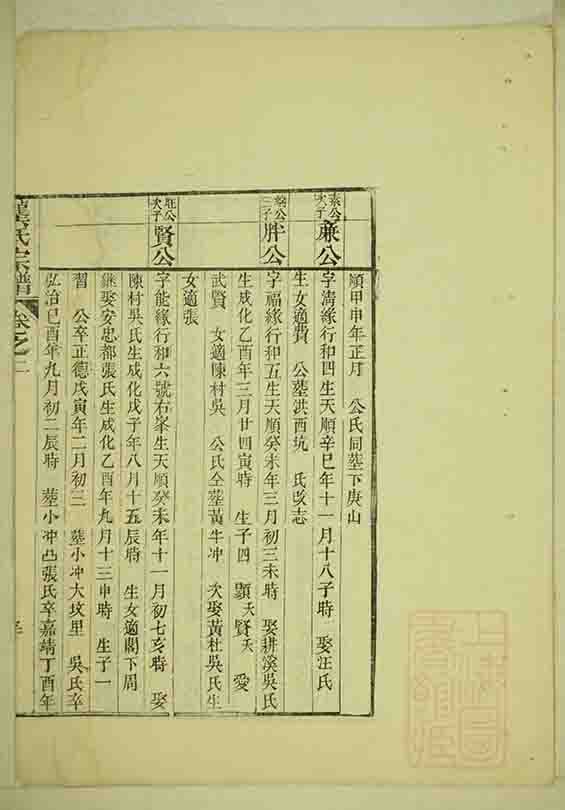 順甲申年正月 公氏同塟下庚山
公次子
兼公
字清緣行和四生天順辛巳年十一月十八子時 娶汪氏
生女適費 公塟洪西坑 氏改志
公三子
胖公
字福緣行和五生天順癸未年三月初三未時 娶耕溪吳氏
生成化乙酉年三月廿四寅時 生子四 顥夭賢夭 愛
武賢 女適陳村吳 公氏仝塟黃牛冲 次娶黃杜吳氏生
女適張
旺公次子
賢公
字能緣行和六號右峯生天順癸未年十一月初七亥時 娶
陳村吳氏生成化戊子年八月十五辰時 生女適閣下周
継娶安忠都張氏生成化乙酉年九月十三申時 生子一
習 公卒正德戊寅年二月初三 塟小冲大坟里 吳氏卒
弘治己酉年九月初二辰時 塟小冲凸張氏卒嘉靖丁酉年
氏宗譜 卷之二